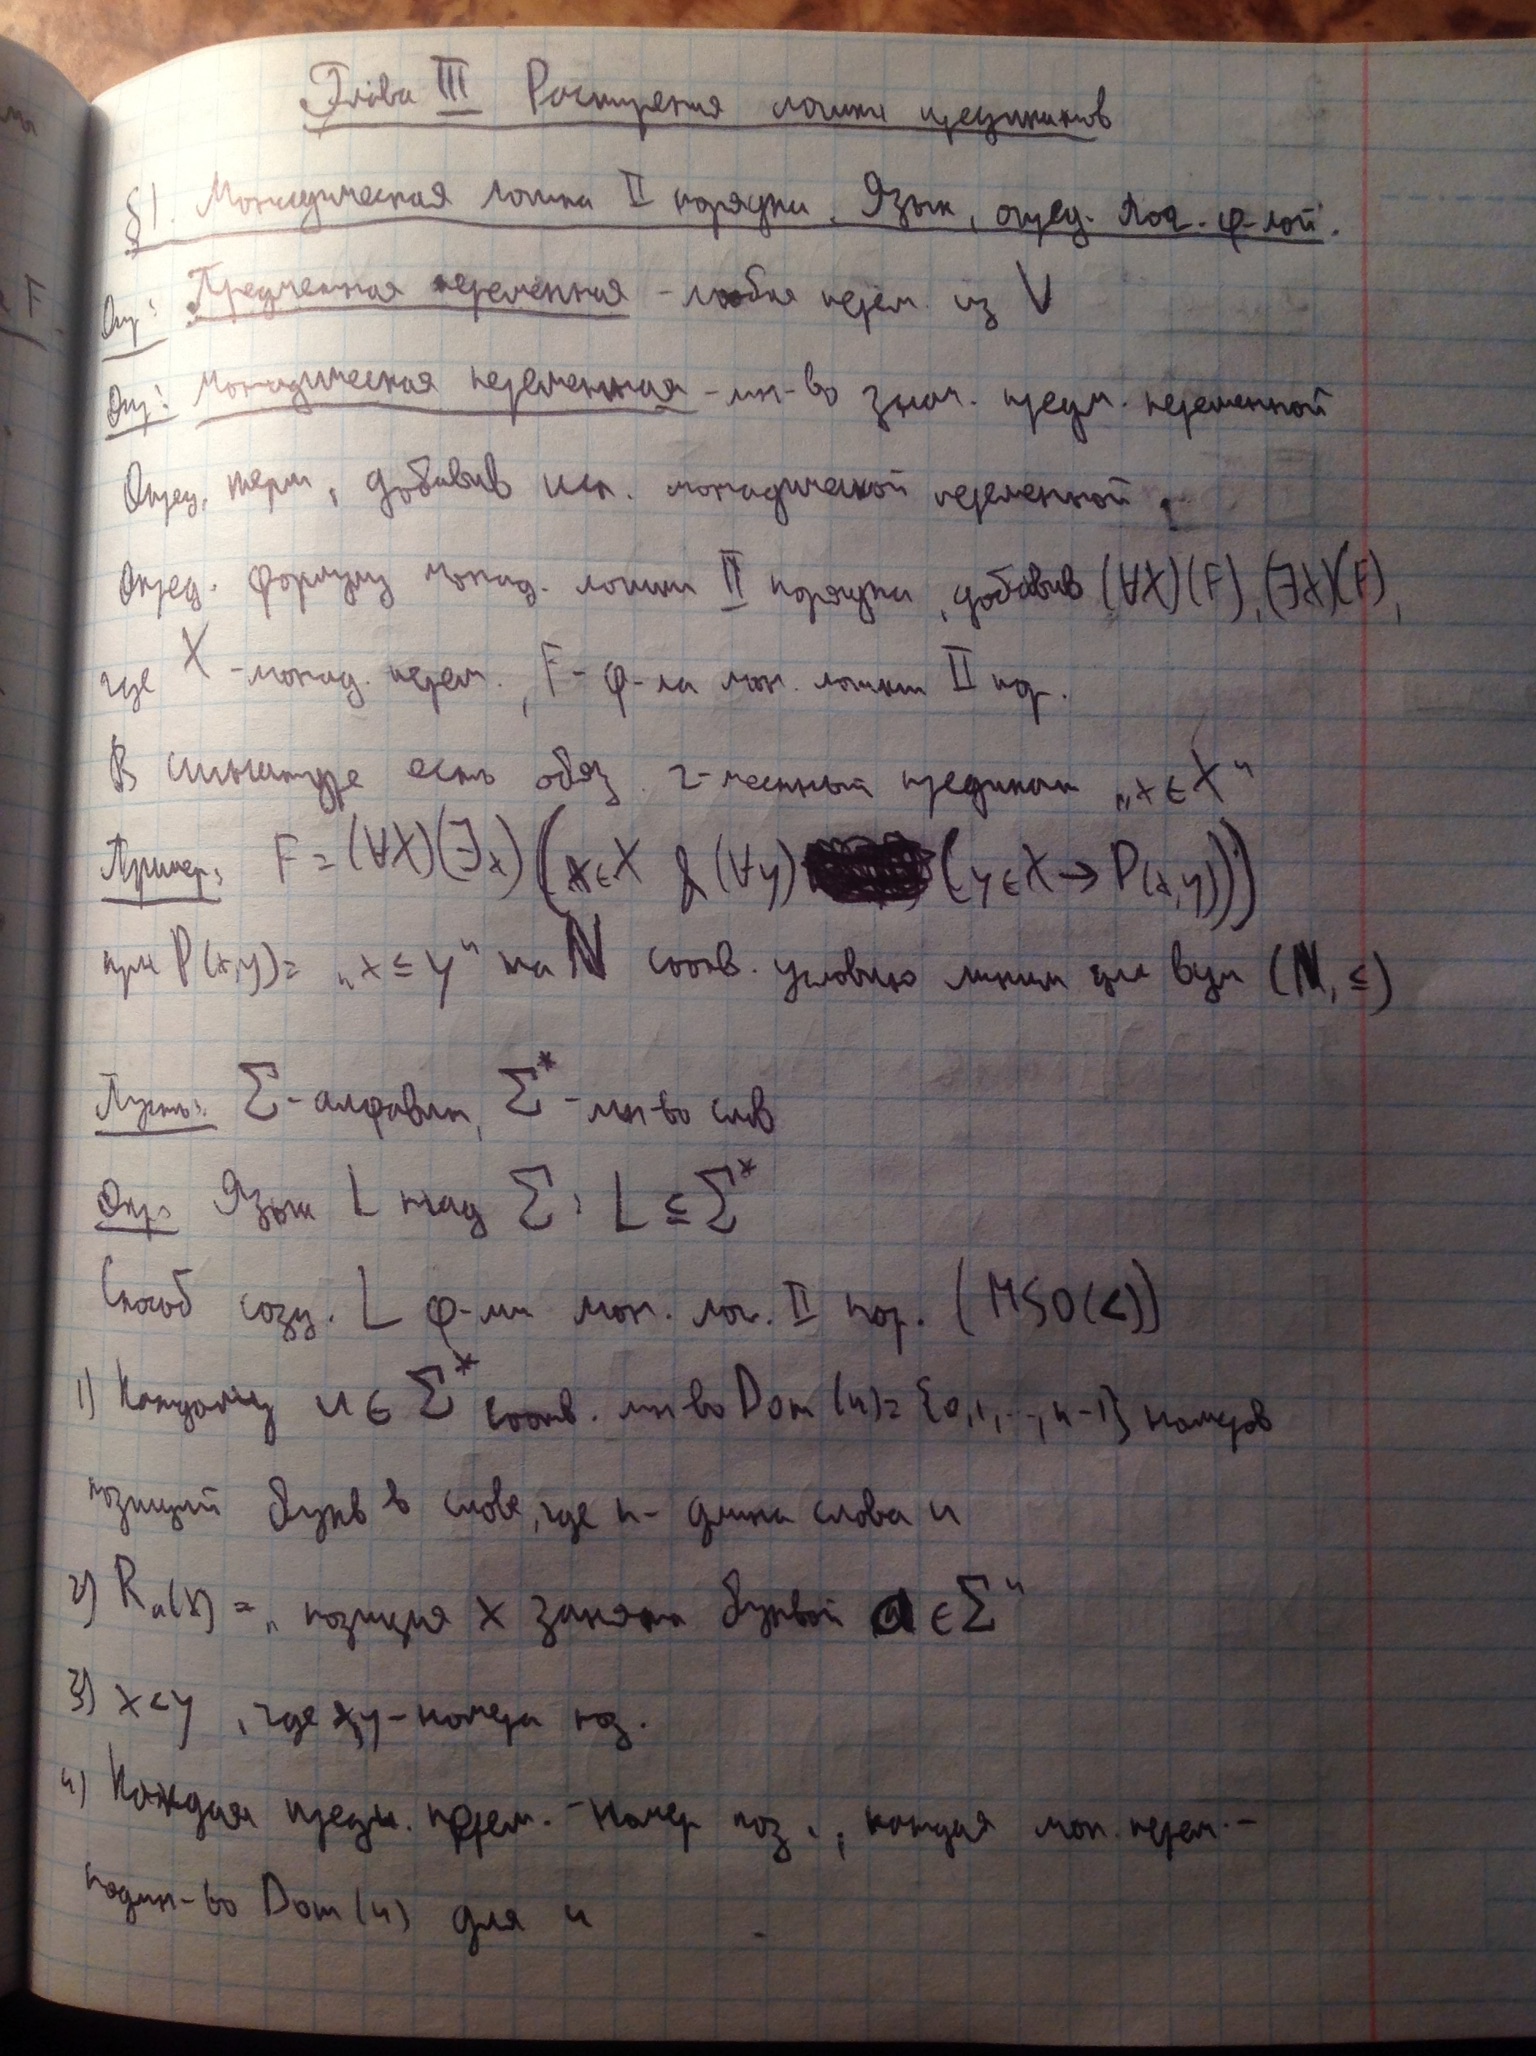 Глава III Расширения логики предикатов
§1. Монадическая логика II порядка. Язык, опред. лог. ф-лой.
Опр: Предметная переменная - любая перем. из V
Опр: Монадическая переменная - мн-во знач. предм. переменной
Опред. терм, добавив исп. монадической переменной.
Опред. формулу монад. логики II порядка, добавив (∀X)(F), (∃X)(F),
где X - монад. перем., F - ф-ла мон. логики II пор.
В сигнатуре есть обяз. 2-местный предикат „x∈X"
Пример: F = (∀X)(∃x)(x∈X & (∀y) (y∈X → P(x,y)))
при P(x,y)= „x ≤ y" на N соотв. условию миним для вум (N, ≤)
Пусть: Σ - алфавит, Σ* - мн-во слов
Опр: Язык L над Σ: L ⊆ Σ*
Способ созд. L ф-ми мон. лог. II пор. (MSO(<))
1) Каждому u ∈ Σ* соотв. мн-во Dom(u) = {0,1,...,n-1} номеров
позиций букв в слове, где n - длина слова u
2) Rₐ(x) = „позиция x занята буквой a ∈ Σ"
3) x<y, где x,y - номера поз.
4) Каждая предм. перем. - номер поз., каждая мон. перем. -
подмн-во Dom(u) для u